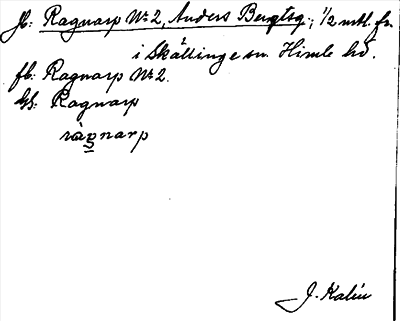 jb: Ragnarp Nr 2, Anders Bengtsg.; 1/2 mtl. fr.
i Skällinge sn Himle hd.
fb: Ragnarp Nr 2.
Gs: Ragnarp
ràgnarp
J. Kalén